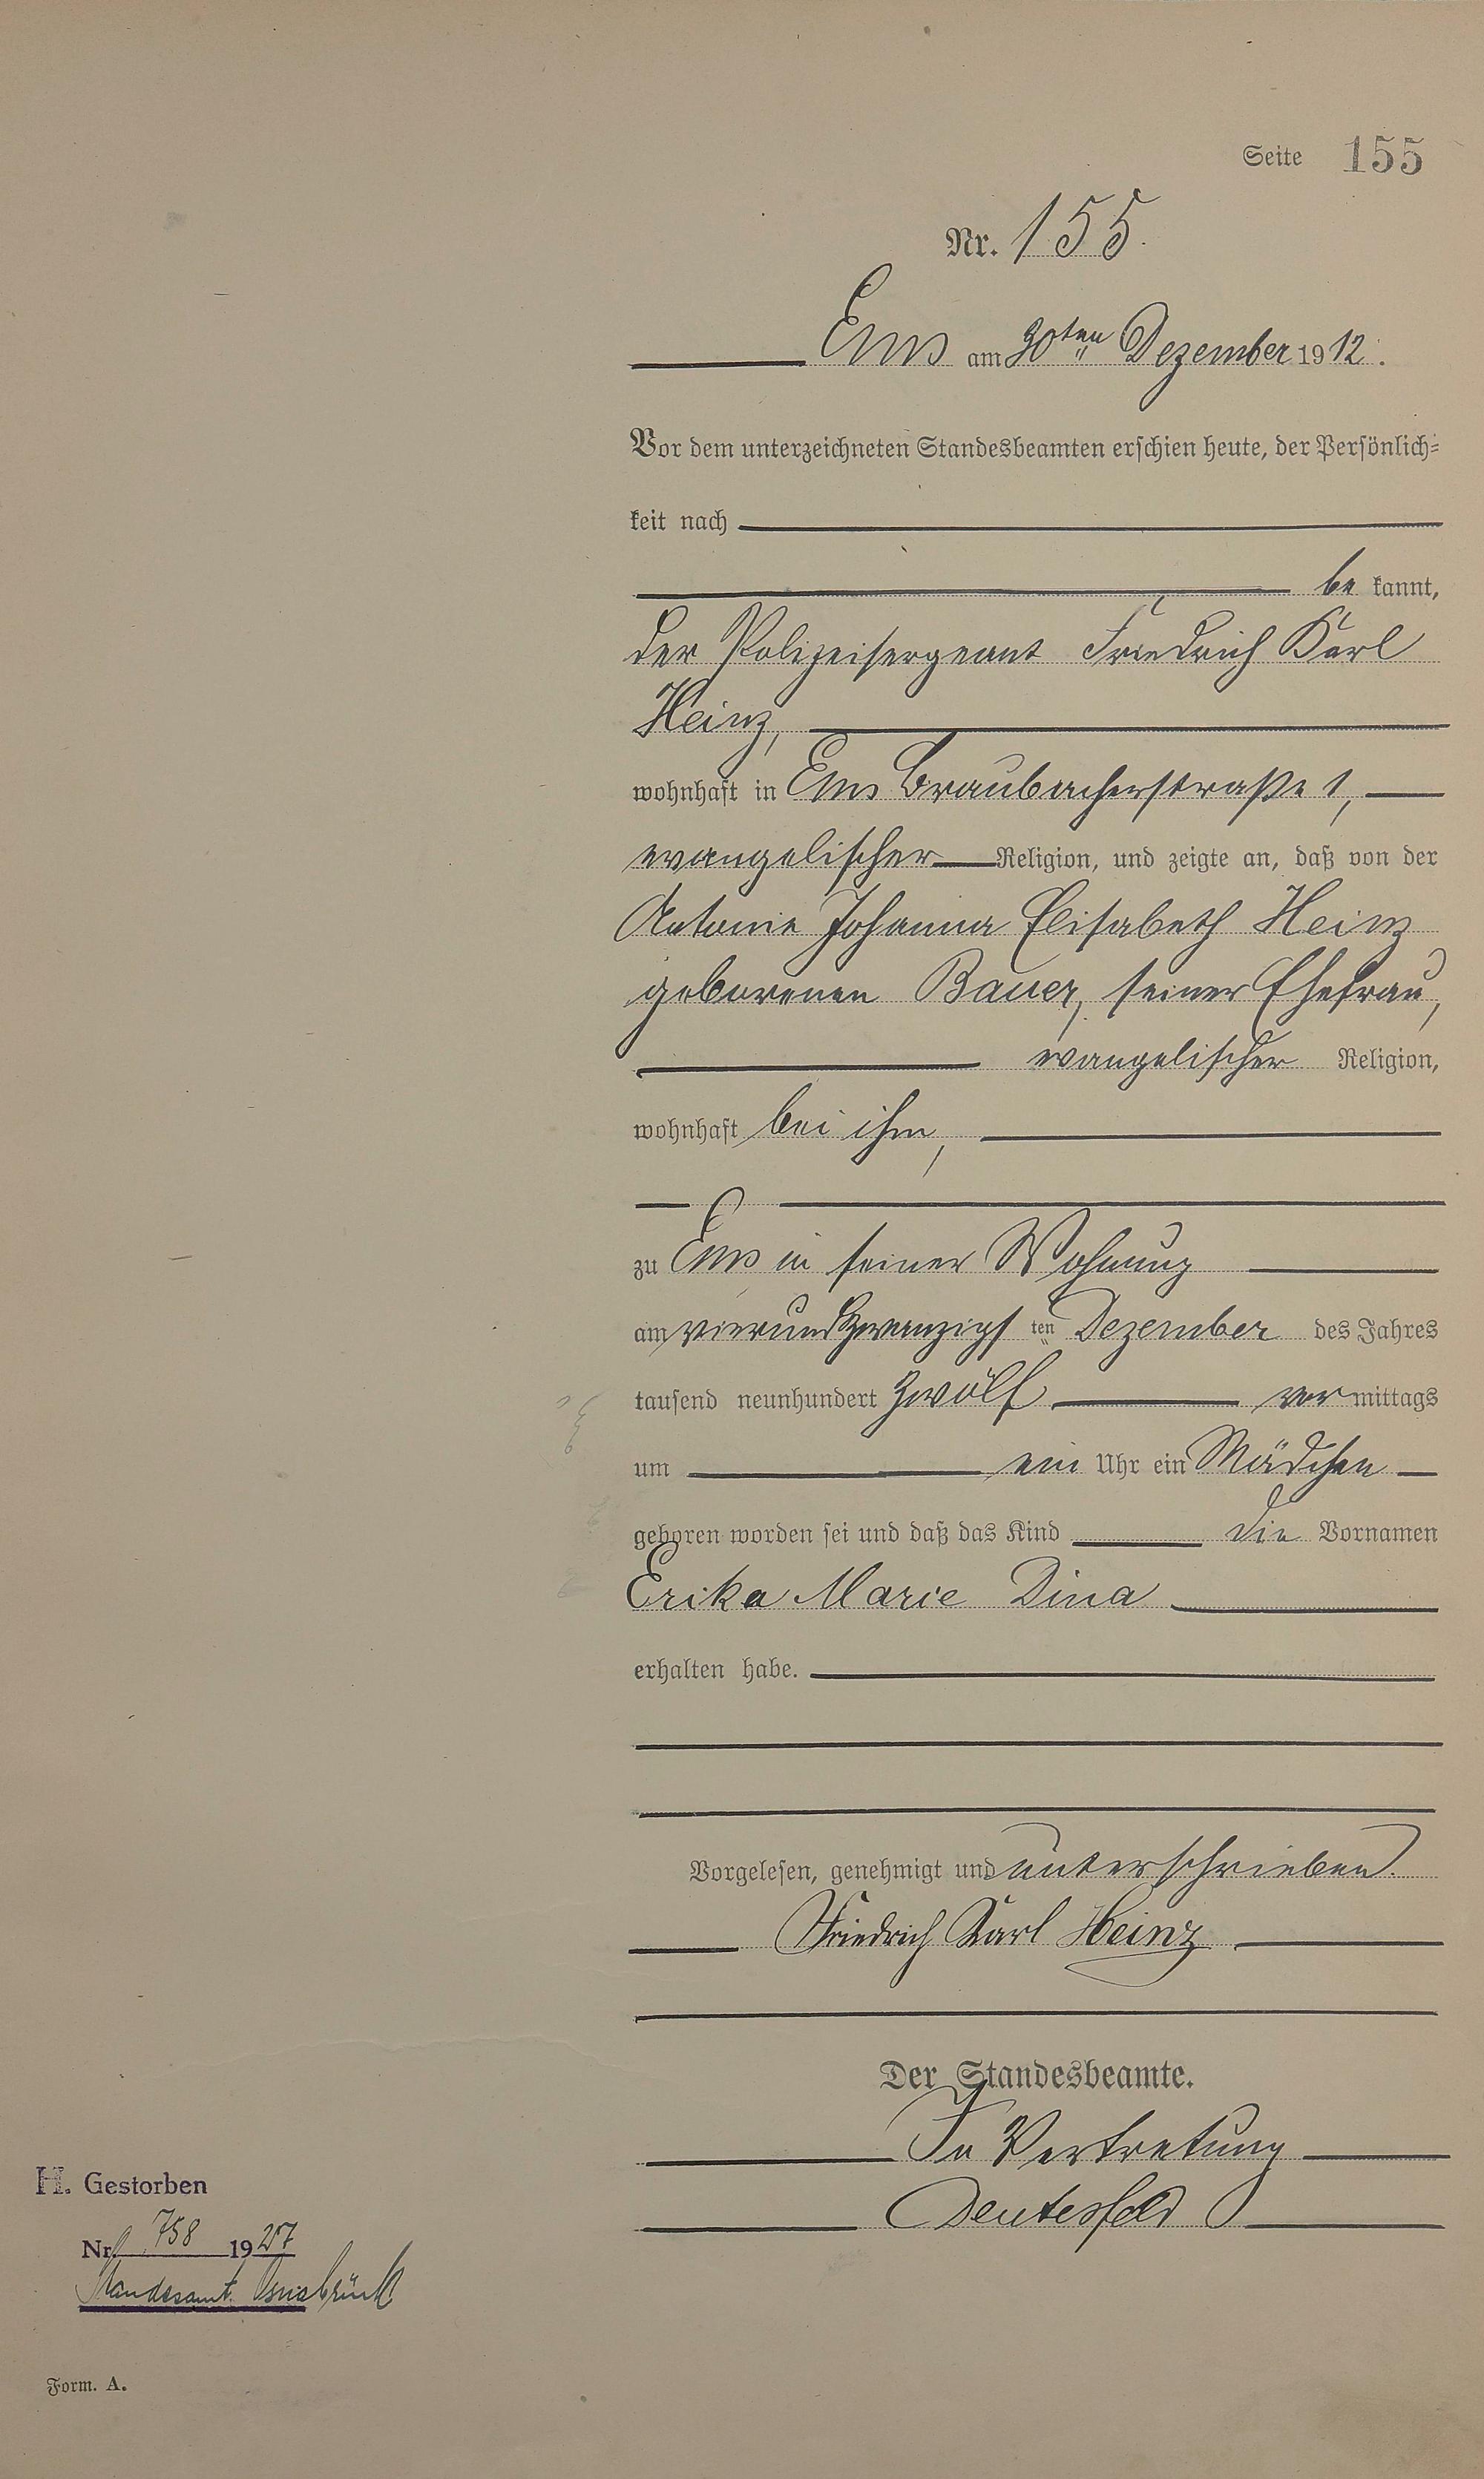 Seite 155
Nr. 155.
Ems am 30ten Dezember 1912.
Vor dem unterzeichneten Standesbeamten erschien heute, der Persönlich=
keit nach
be kannt,
der Polizeisergeant Friedrich Karl
Heinz,
wohnhaft in Ems Braubacherstraße 1,
evangelischer Religion, und zeigte an, daß von der
Antonie Johanna Elisabeth Heinz
geborenen Bauer, seiner Ehefrau,
evangelischer Religion,
wohnhaft bei ihm,
zu Ems in seiner Wohnung
am vierundzwanzigsten Dezember des Jahres
tausend neunhundert zwölf vormittags
um ein Uhr ein Mädchen
geboren worden sei und daß das Kind die Vornamen
Erika Marie Dina
erhalten habe.
Vorgelesen, genehmigt und unterschrieben.
Friedrich Karl Heinz
Der Standesbeamte.
In Vertretung
H. Gestorben
Nr. 758 1927
Standesamt Osnabrück
Form. A.